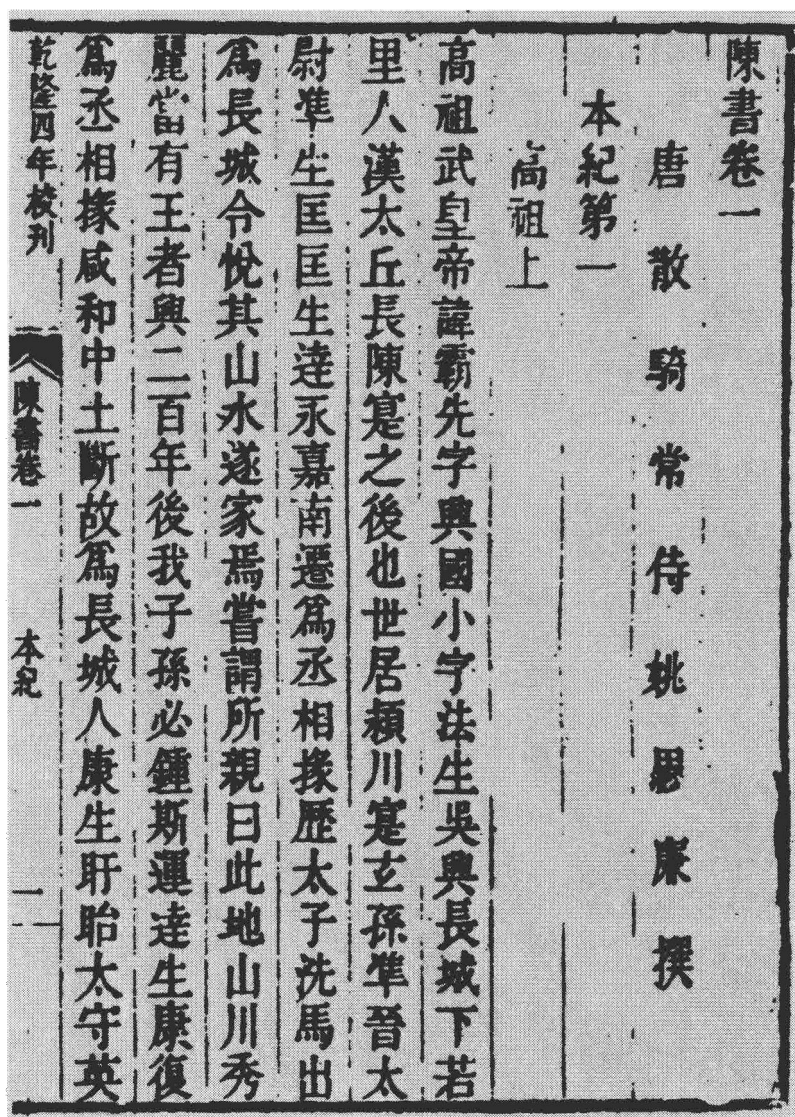 陳書卷一
唐散騎常侍姚思廉撰
本紀第一
高祖上
高祖武皇帝諱霸先字興國小字法生吳興長城下若
里人漢太丘長陳寔之後也世居潁川寔玄孫準晉太
尉準生匡匡生達永嘉南遷爲丞相掾歷太子洗馬出
爲長城令悅其山水遂家焉嘗謂所親曰此地山川秀
麗當有王者興二百年後我子孫必鍾斯運達生康復
爲丞相掾咸和中土斷故爲長城人康生盱眙太守英
乾隆四年校刊
陳書卷一
本紀
一